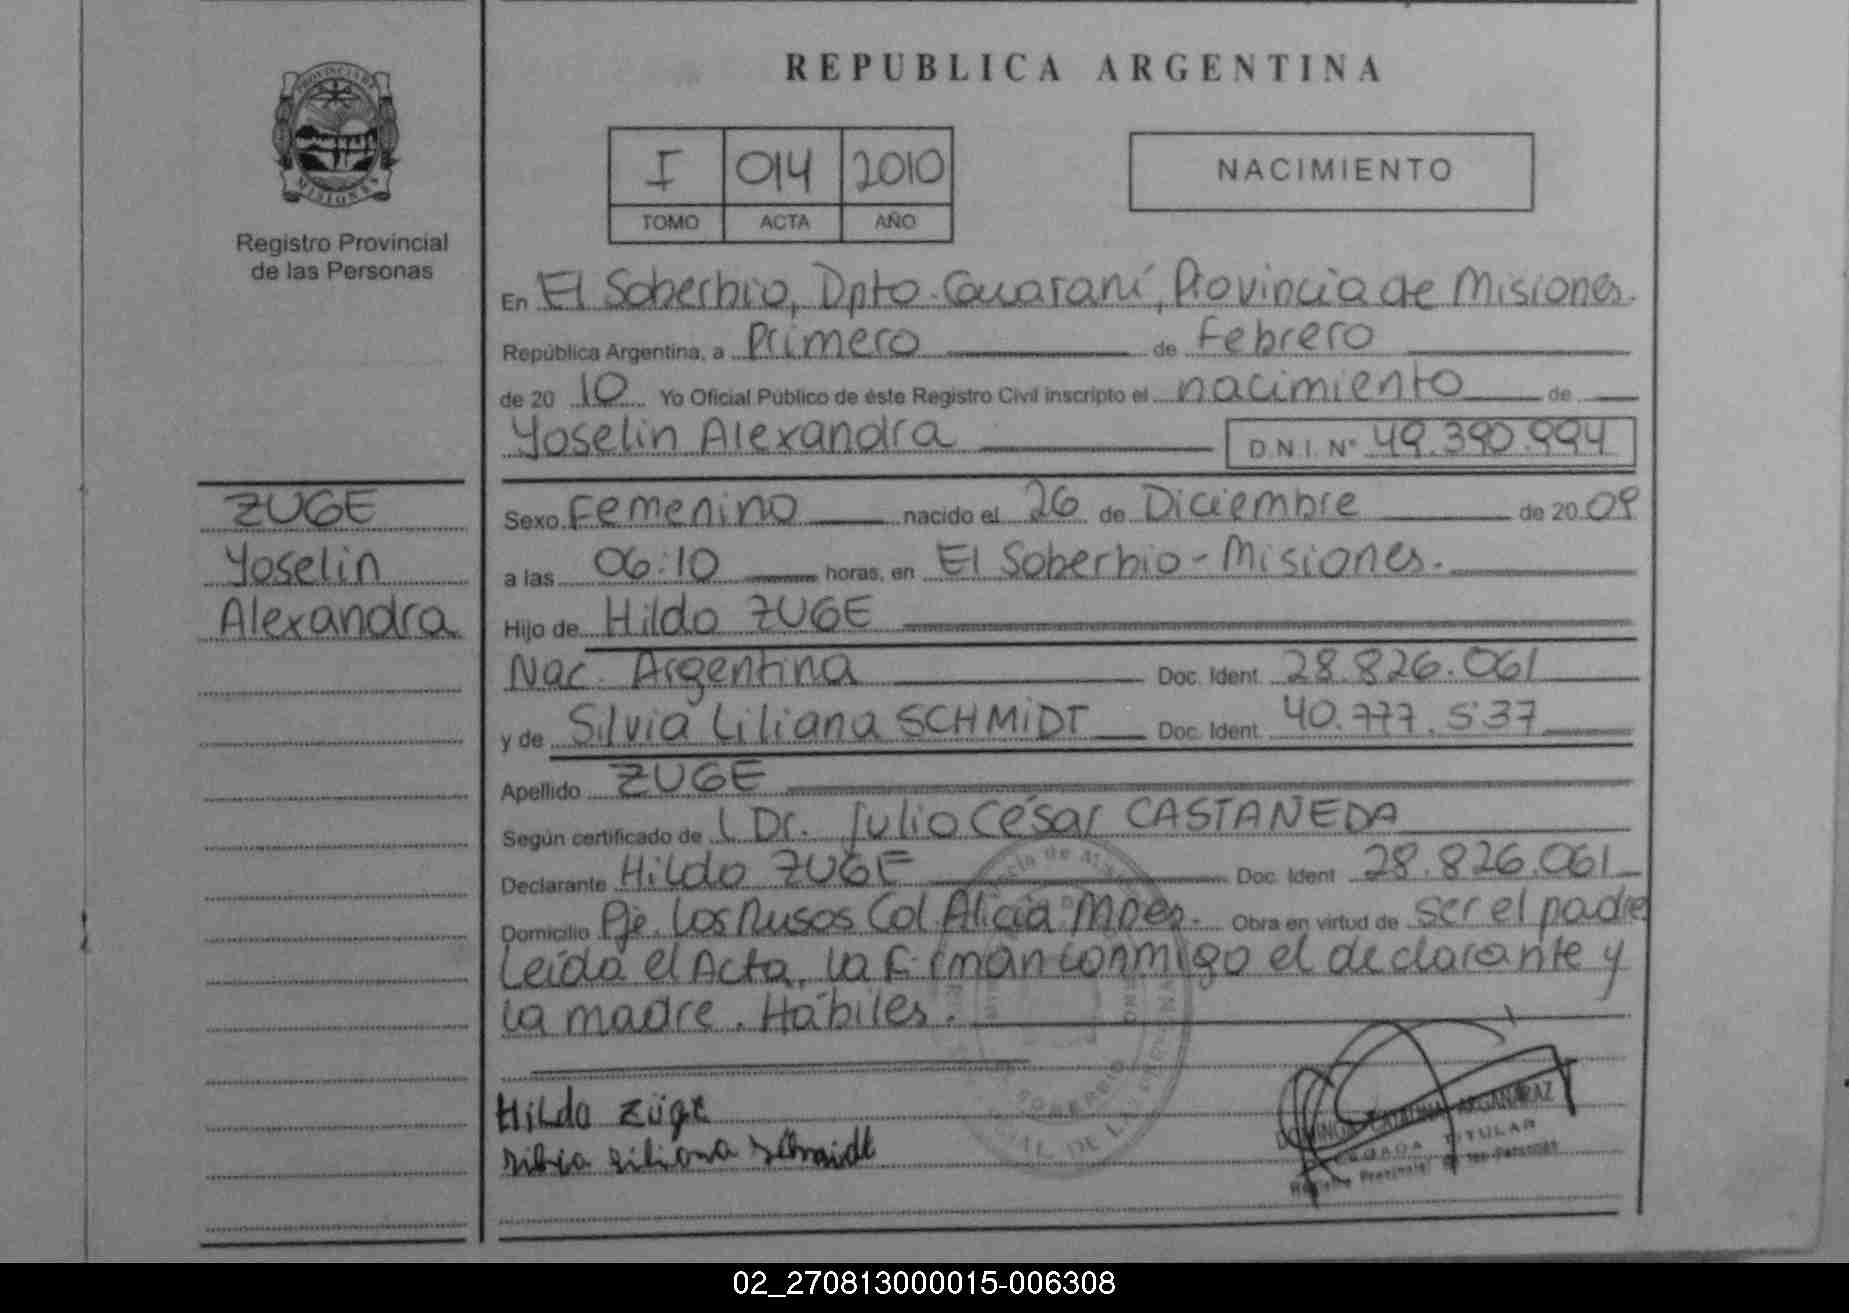 REPUBLICA ARGENTINA
PROVINCIA DE
MISIONES
Registro Provincial
de las Personas
I 014 2010
TOMO ACTA AÑO
NACIMIENTO
En El Soberbio, Dpto. Guaraní, Provincia de Misiones.
República Argentina, a Primero de Febrero
de 20 10 Yo Oficial Público de éste Registro Civil inscripto el nacimiento de
Yoselin Alexandra D.N.I. Nº 49.390.994
ZUGE
Yoselin
Alexandra
Sexo Femenino nacido el 26 de Diciembre de 20 09
a las 06:10 horas, en El Soberbio - Misiones.
Hijo de Hildo ZUGE
Nac. Argentina Doc. Ident. 28.826.061
y de Silvia Liliana SCHMIDT Doc. Ident. 40.777.537
Apellido ZUGE
Según certificado de Dr. Julio César CASTAÑEDA
Declarante Hildo ZUGE Doc. Ident. 28.826.061
Domicilio Pje. Los Rusos Col. Alicia Mnes. Obra en virtud de ser el padre
Leída el Acta, la firman conmigo el declarante y
la madre. Hábiles.
Hildo Züge
silvia liliana schmidt
ARGAÑARAZ
TITULAR
SOBERBIO
DE LAS
02_270813000015-006308